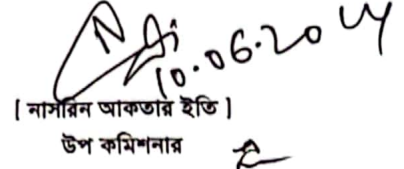 10.06.20
[ নাসরিন আকতার ইতি ]
উপ কমিশনার